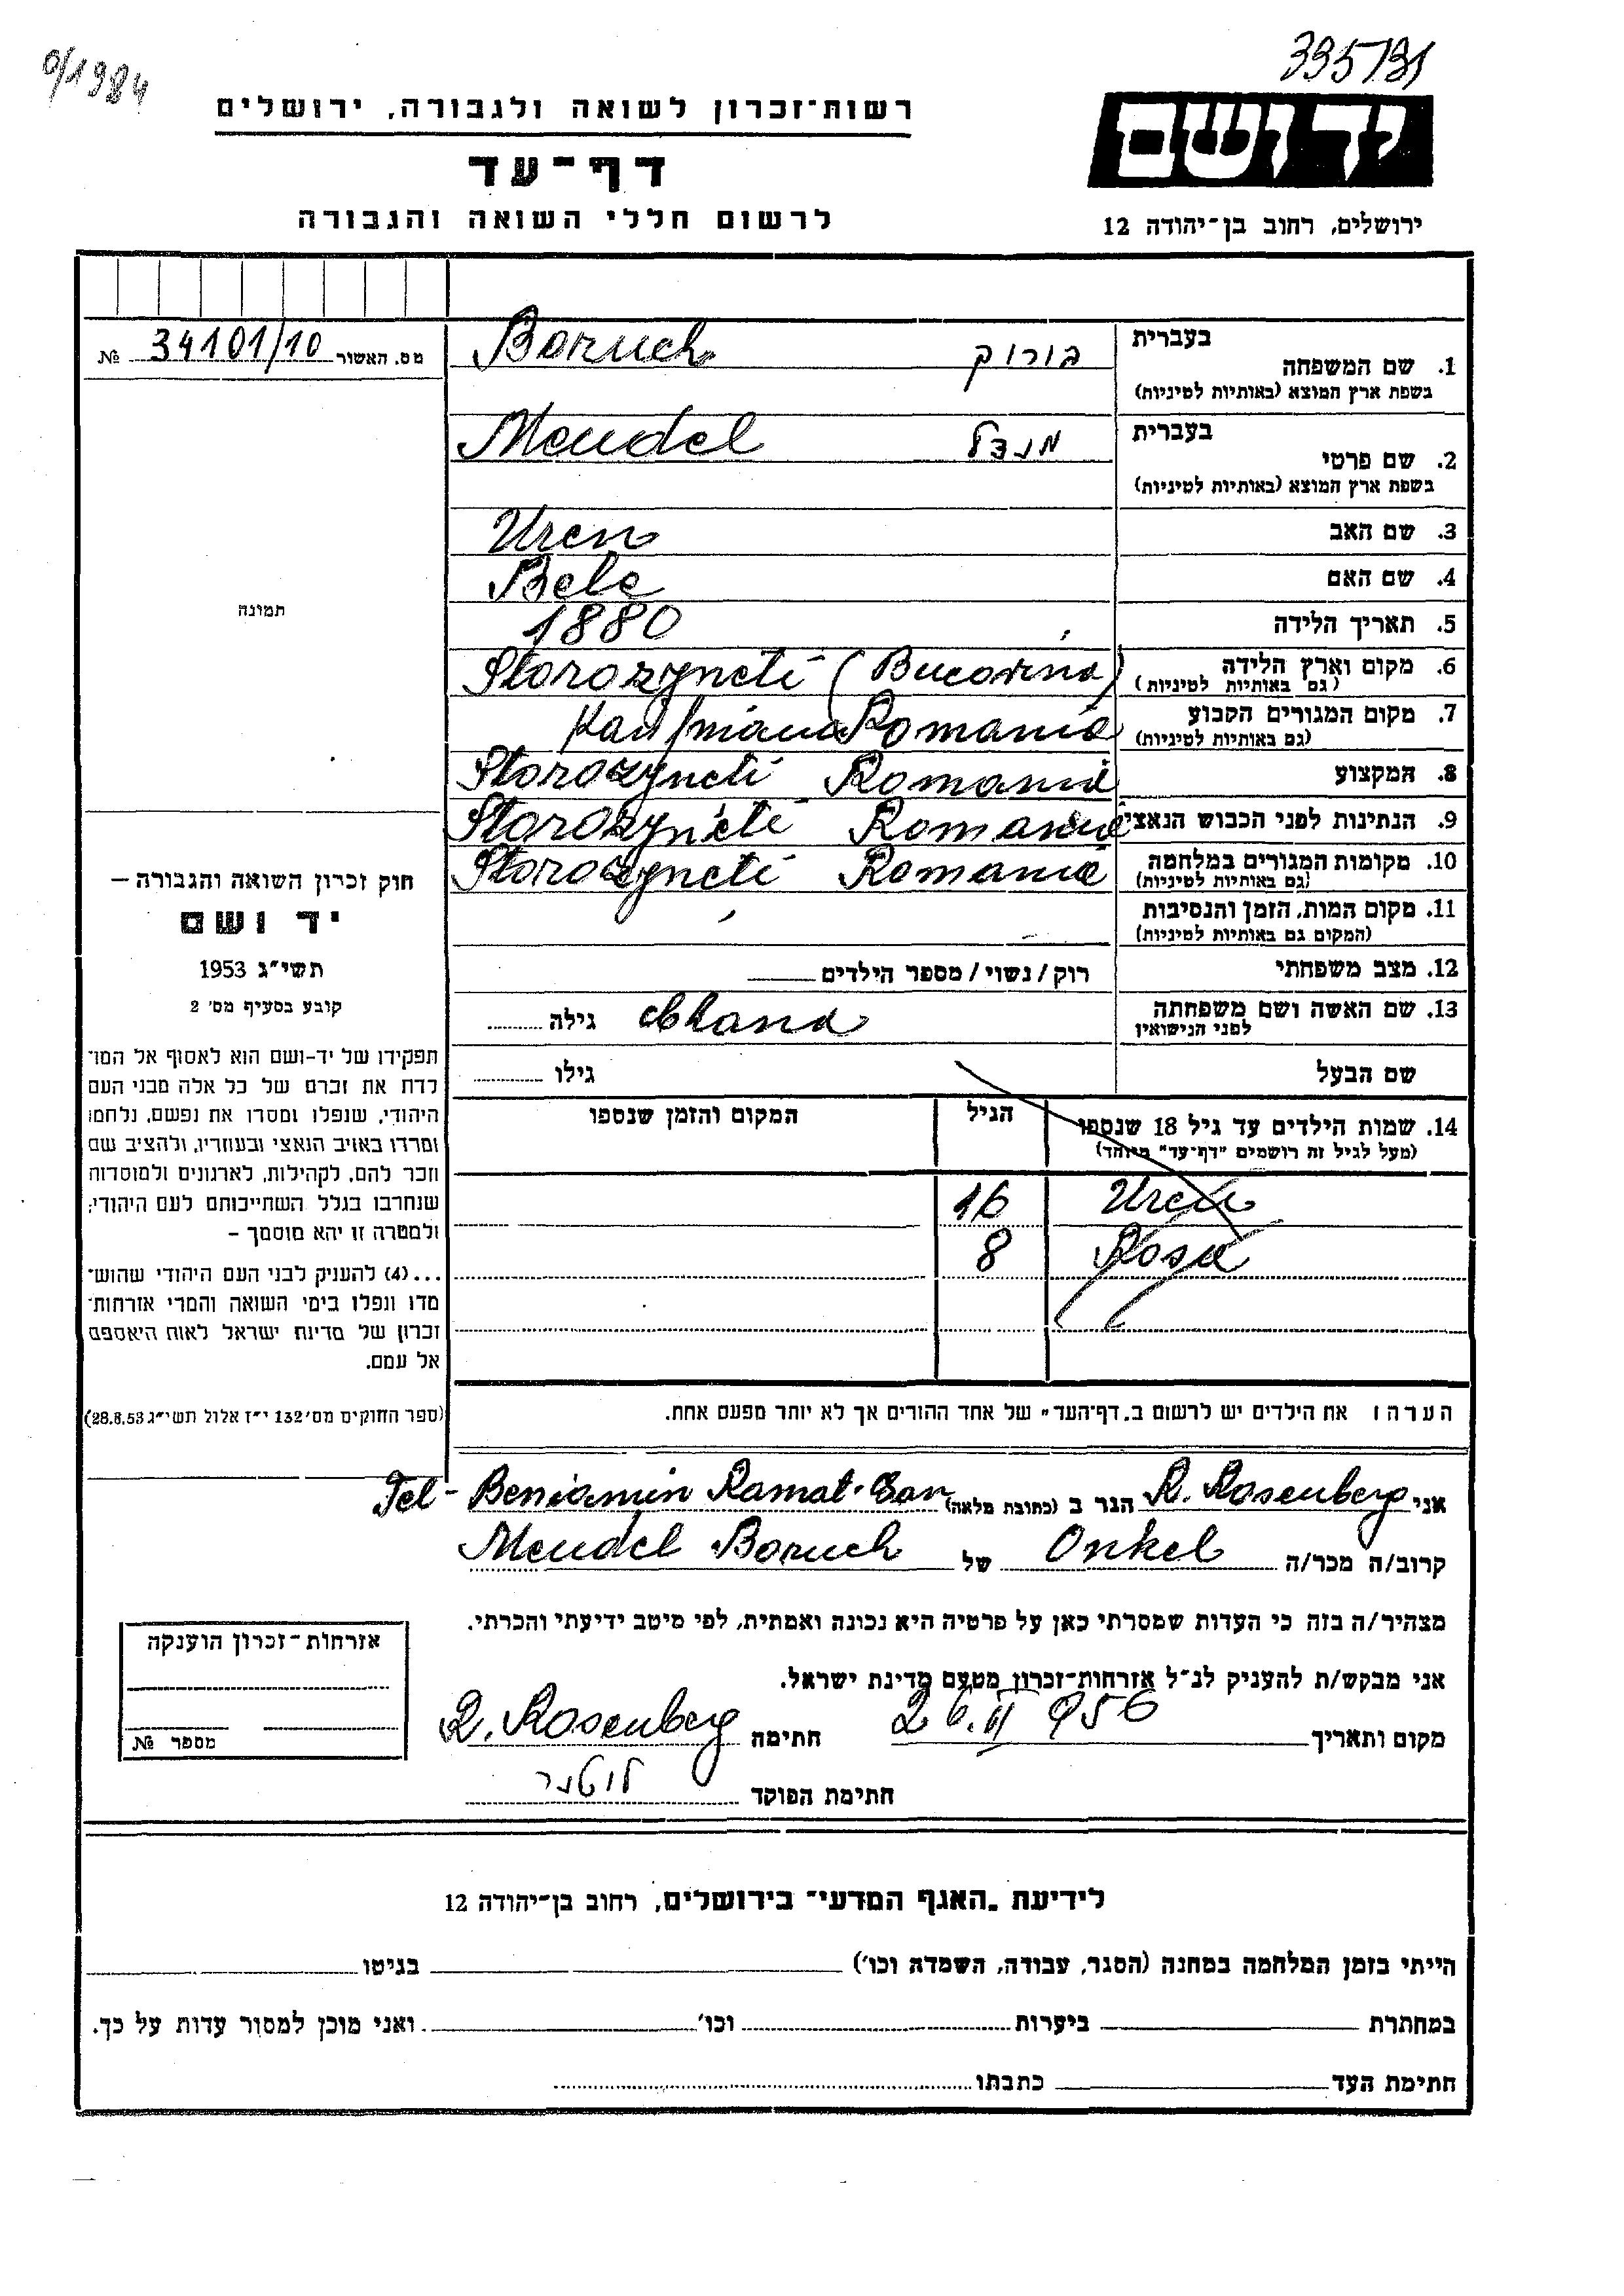 335/31
0/1984
יד ושם
ירושלים, רחוב בן־יהודה 12
רשות־זכרון לשואה ולגבורה, ירושלים
דף־עד
לרשום חללי השואה והגבורה
מס. האשור 34101/10 №
בעברית
1. שם המשפחה
בשפת ארץ המוצא (באותיות לטיניות)
בורוך Boruch
בעברית
2. שם פרטי
בשפת ארץ המוצא (באותיות לטיניות)
מנדל Mendel
3. שם האב Uren
4. שם האם Bele
5. תאריך הלידה 1880
6. מקום וארץ הלידה
(גם באותיות לטיניות)
Storozyneti (Bucovina)
7. מקום המגורים הקבוע
(גם באותיות לטיניות)
Kaufmann Romania
8. המקצוע
Storozyneti Romania
9. הנתינות לפני הכבוש הנאצי
Storozyneti Romania
10. מקומות המגורים במלחמה
(גם באותיות לטיניות)
Storozyneti Romania
11. מקום המות, הזמן והנסיבות
(המקום גם באותיות לטיניות)
12. מצב משפחתי רוק / נשוי / מספר הילדים
13. שם האשה ושם משפחתה
לפני הנישואין
Chana גילה
שם הבעל גילו
14. שמות הילדים עד גיל 18 שנספו הגיל המקום והזמן שנספו
(מעל לגיל זה רושמים "דף־עד" מיוחד)
Uren 16
Rosa 8
הערה: את הילדים יש לרשום ב„דף־העד" של אחד ההורים אך לא יותר מפעם אחת.
תמונה
חוק זכרון השואה והגבורה —
יד ושם
תשי"ג 1953
קובע בסעיף מס' 2
תפקידו של יד-ושם הוא לאסוף אל המו־
לדת את זכרם של כל אלה מבני העם
היהודי, שנפלו ומסרו את נפשם, נלחמו
ומרדו באויב הנאצי ובעוזריו, ולהציב שם
וזכר להם, לקהילות, לארגונים ולמוסדות
שנחרבו בגלל השתייכותם לעם היהודי;
ולמטרה זו יהא מוסמך –
...(4) להעניק לבני העם היהודי שהוש־
מדו ונפלו בימי השואה והמרי אזרחות־
זכרון של מדינת ישראל לאות היאספם
אל עמם.
(ספר החוקים מס' 132 י"ז אלול תשי"ג 28.8.53)
אני R. Rosenberg הגר ב (כתובת מלאה) Tel-Beniamin Ramat-Gan
קרוב/ה מכר/ה Onkel של Mendel Boruch
מצהיר/ה בזה כי העדות שמסרתי כאן על פרטיה היא נכונה ואמתית, לפי מיטב ידיעתי והכרתי.
אני מבקש/ת להעניק לנ"ל אזרחות־זכרון מטעם מדינת ישראל.
מקום ותאריך 26.II 956 חתימה R. Rosenberg
חתימת הפוקד
אזרחות־זכרון הוענקה
מספר №
לידיעת „האגף המדעי" בירושלים, רחוב בן־יהודה 12
הייתי בזמן המלחמה במחנה (הסגר, עבודה, השמדה וכו') בגיטו
במחתרת ביערות וכו' ואני מוכן למסור עדות על כך.
חתימת העד כתבתו